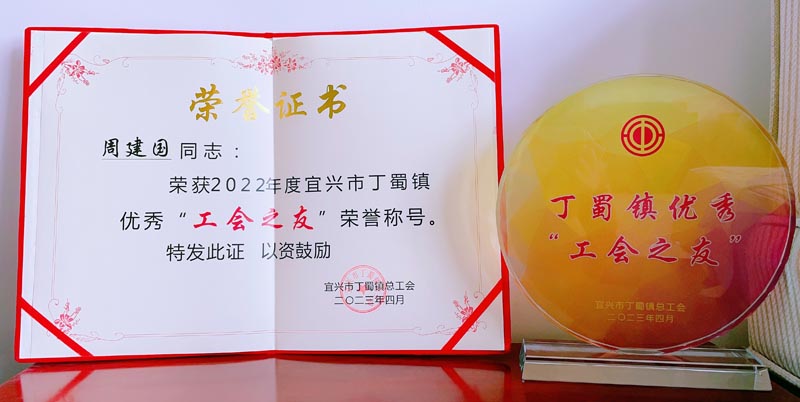 荣誉证书
周建国同志：
荣获2022年度宜兴市丁蜀镇
优秀“工会之友”荣誉称号。
特发此证 以资鼓励
宜兴市丁蜀镇总工会
二〇二三年四月
丁蜀镇优秀
“工会之友”
宜兴市丁蜀镇总工会
二〇二三年四月